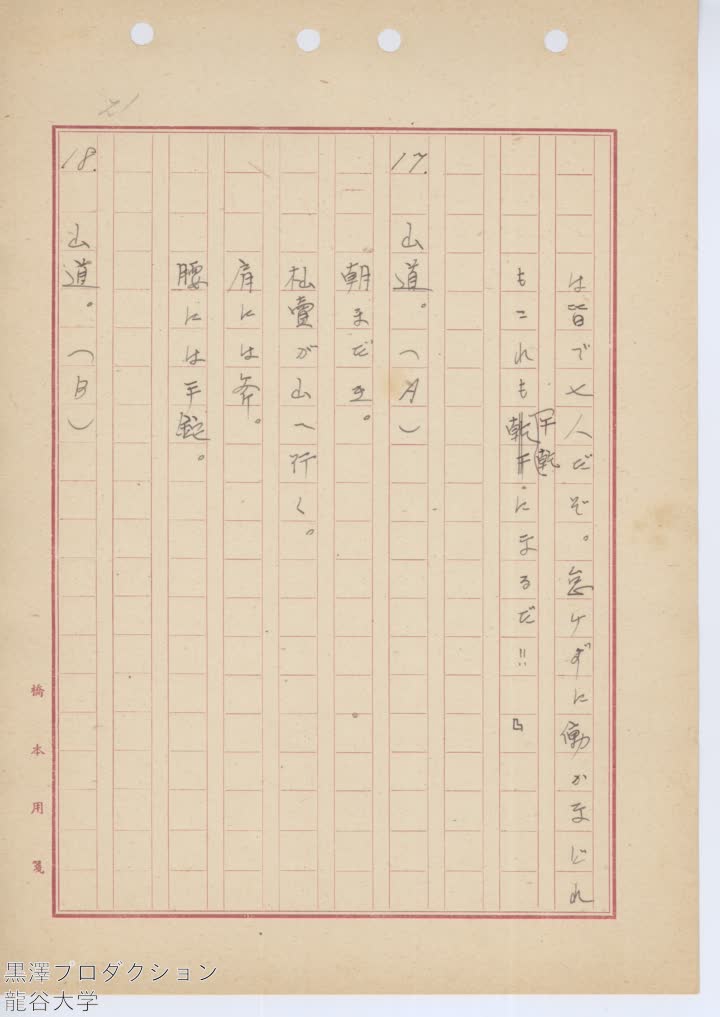 21
は皆で七人だぞ。怠ケずに働かなどれ
もこれも干乾になるだ!!』
17. 山道。(A)
朝まだき。
杣賣が山へ行く。
肩には斧。
腰には手鉈。
18. 山道。(B)
橋本用箋
黒澤プロダクション
龍谷大学